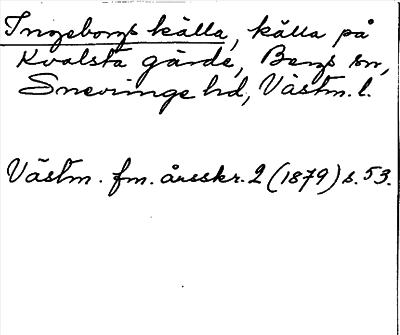 Ingeborgs källa, källa på
Kvalsta gärde, Bergs sn,
Snevringe hd, Västm. l.
Västm. fm. årsskr. 2 (1879) s. 53.